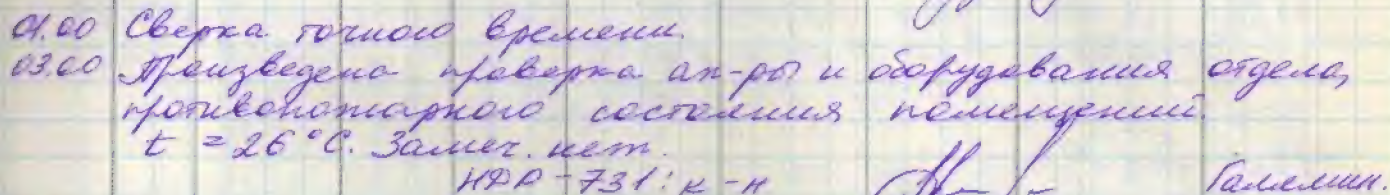 01.00 Сверка точного времени.
03.00 Произведена проверка ап-ры и оборудования отдела,
противопожарного состояния помещений.
t = 26°C. Замеч. нет.
НДР-731: к-н Галемин.